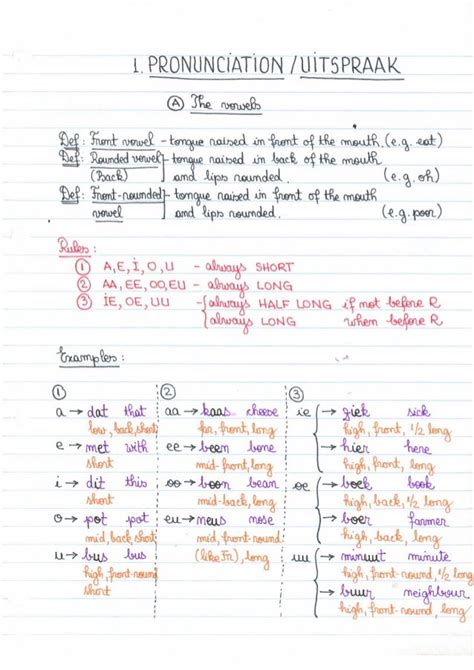 1. PRONUNCIATION / UITSPRAAK
Ⓐ The vowels
Def: Front vowel - tongue raised in front of the mouth. (e.g. eat)
Def: Rounded vowel - tongue raised in back of the mouth
(Back) and lips rounded. (e.g. oh)
Def: Front-rounded - tongue raised in front of the mouth
vowel and lips rounded. (e.g. poor)
Rules:
① A, E, I, O, U - always SHORT
② AA, EE, OO, EU - always LONG
③ IE, OE, UU - always HALF LONG if not before R
always LONG when before R
Examples:
① ② ③
a → dat that aa → kaas cheese ie → ziek sick
low, back, short far, front, long high, front, 1/2 long
e → met with ee → been bone → hier here
short mid-front, long high, front, long
i → dit this oo → boon bean oe → boek book
short mid-back, long high, back, 1/2 long
o → pot pot eu → neus nose → boer farmer
mid, back, short mid, front-round high, back, long
u → bus bus (like Fr), long uu → minuut minute
high, front-round high, front-round, 1/2 long
short → buur neighbour
high, front-round, long